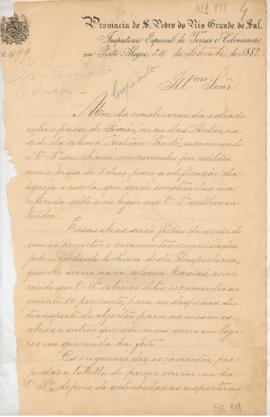 Provincia de S. Pedro do Rio Grande do Sul.
Inspetoria Especial de Terras e Colonisacao
em Porto Alegre, 24 de Setembro de 1882
Copiado
Ill.mo Snr.
Alem da construcção da estrada
entre o passo do Simão, no rio das Antas, e a
séde da colonia Antonio Prado, recommendo
a V.S.ª que chame concurrentes por editaes
com o praso de 8 dias para a edificação da
igreja e escola que serão construidas na
referida séde e no logar que V.S.ª melhor en-
tender.
Essas obras serão feitas de accordo
com os projectos e orçamentos organisados
pelo Ajudante technico desta Inspectoria,
quando serviu na colonia Caxias, sen-
do que V.S.ª sobre os ditos orçamentos au-
gmente 10 por cento, para as despezas de
transporte de objectos para as mesmas
obras, e outros que são mais caros em loga-
res em que nada ha feito.
Os originaes dos orçamentos, pro-
postas e tabella de preços enviará me
V.S.ª depois de contractadas as respectivas